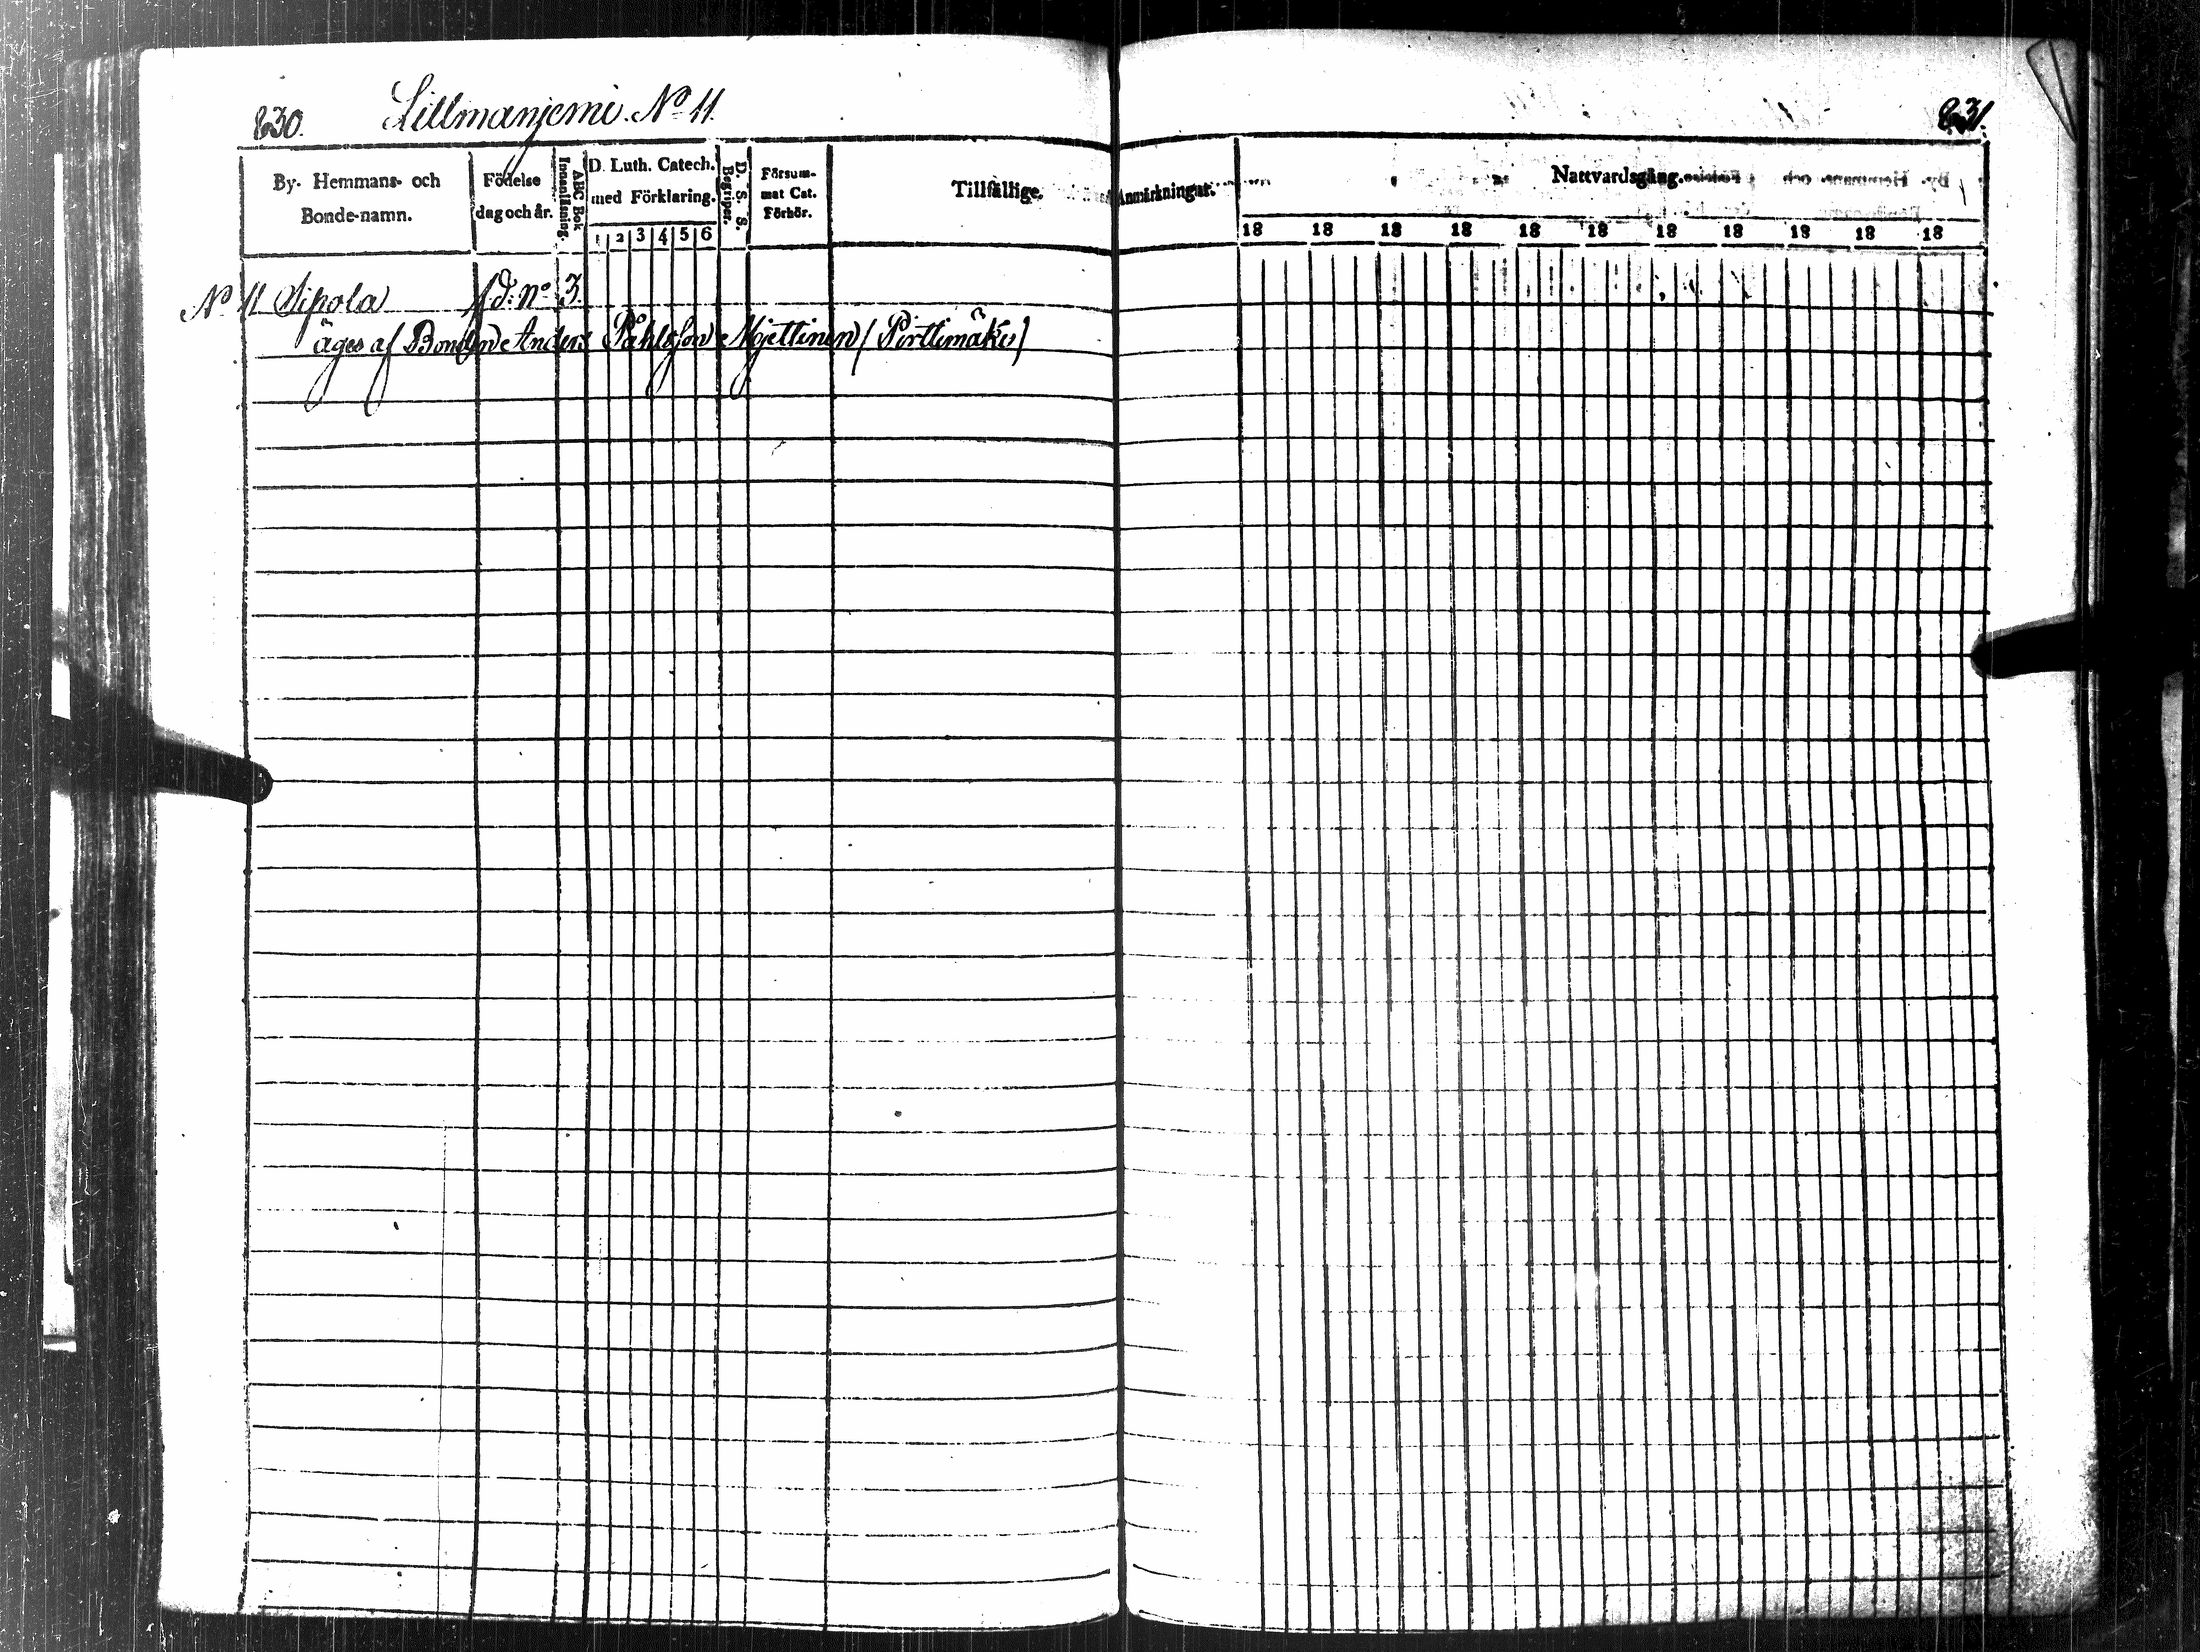 630. Lillmanjemi. No 11.
631.
By- Hemmans- och Bonde-namn.
Födelse dag och år.
ABC Bok Innanläsning.
D. Luth. Catech. med Förklaring.
1 2 3 4 5 6
D. S. S. Begriper.
Försum- mat Cat. Förhör.
Tillfällige Anmärkningar.
Nattvardsgång.
18 18 18 18 18 18 18 18 18 18 18
No 11 Sipola f.d: No 3.
äges af Bonden Anders Påhlsson Mjettinen (Pirttimäki)